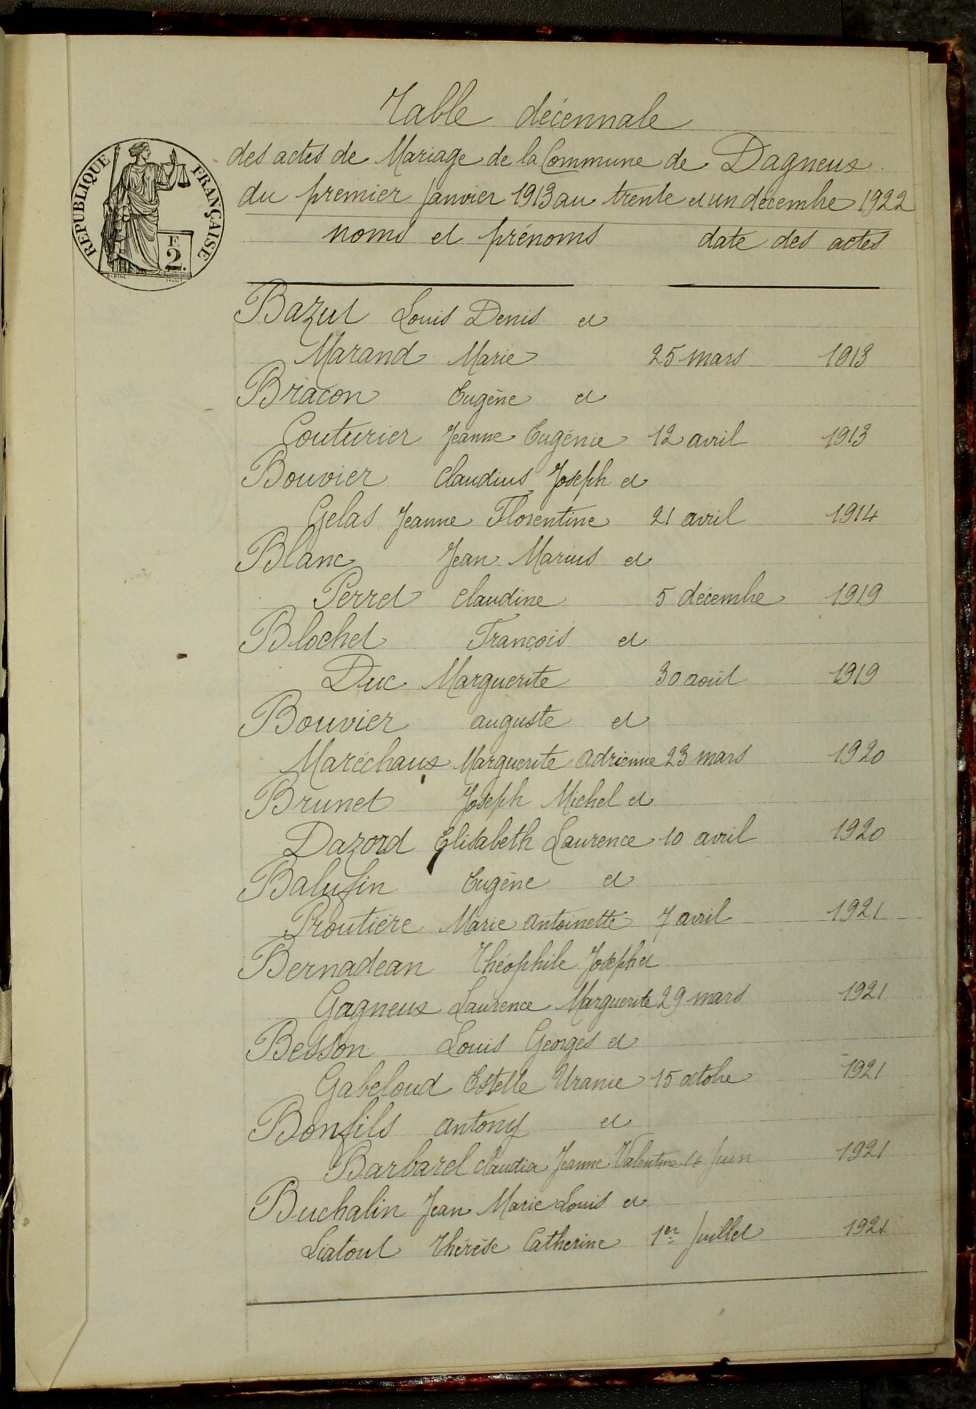 Table décennale
des actes de Mariage de la Commune de Dagneux
du premier Janvier 1913 au trente et un décembre 1922
noms et prénoms date des actes
RÉPUBLIQUE FRANÇAISE
F
2.
Bazut Louis Denis et
Marand Marie 25 mars 1913
Bracon Eugène et
Couturier Jeanne Eugénie 12 avril 1913
Bouvier Claudius Joseph et
Gelas Jeanne Florentine 21 avril 1914
Blanc Jean Marius et
Perret Claudine 5 décembre 1919
Blochet François et
Duc Marguerite 30 août 1919
Bouvier auguste et
Maréchaux Marguerite Adrienne 23 mars 1920
Brunet Joseph Michel et
Dazord Elisabeth Laurence 10 avril 1920
Balufin Eugène et
Proutière Marie Antoinette 7 avril 1921
Bernadean Théophile Joseph et
Gagneux Laurence Marguerite 29 mars 1921
Besson Louis Georges et
Gabeloud Estelle Uranie 15 octobre 1921
Bonfils Antony et
Barbarel Claudia Jeanne Valentine Juin 1921
Buchalin Jean Marie Louis et
Liatout Thérèse Catherine 1er Juillet 1921